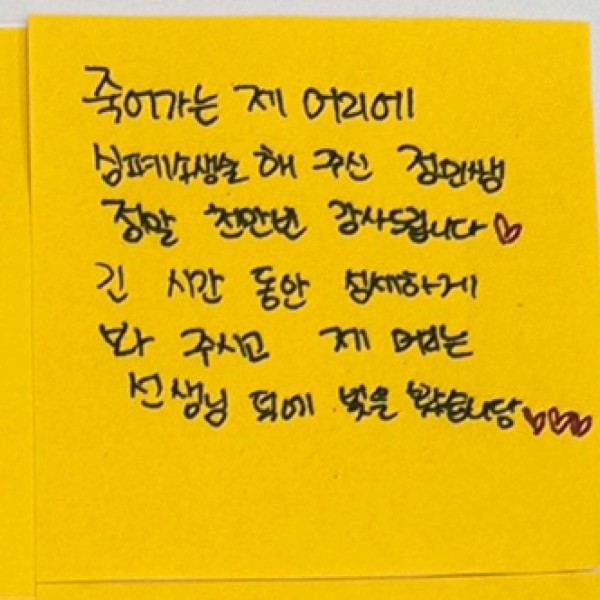 죽어가는 제 머리에
심폐소생술 해 주신 정민쌤
정말 천만번 감사드립니다♡
긴 시간 동안 섬세하게
봐 주시고 제 머리는
선생님 덕에 빛을 봤습니당♡♡♡